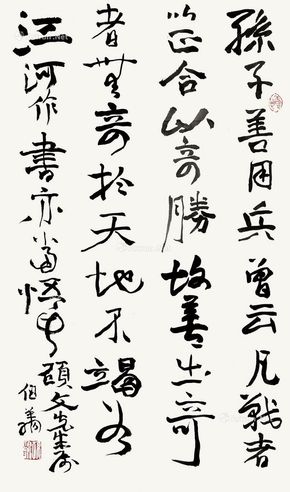 孫子善用兵曾云凡戰者
以正合以奇勝故善出奇
者無窮於天地不竭若
江河作書亦當悟其
碩文先生屬
伯翔